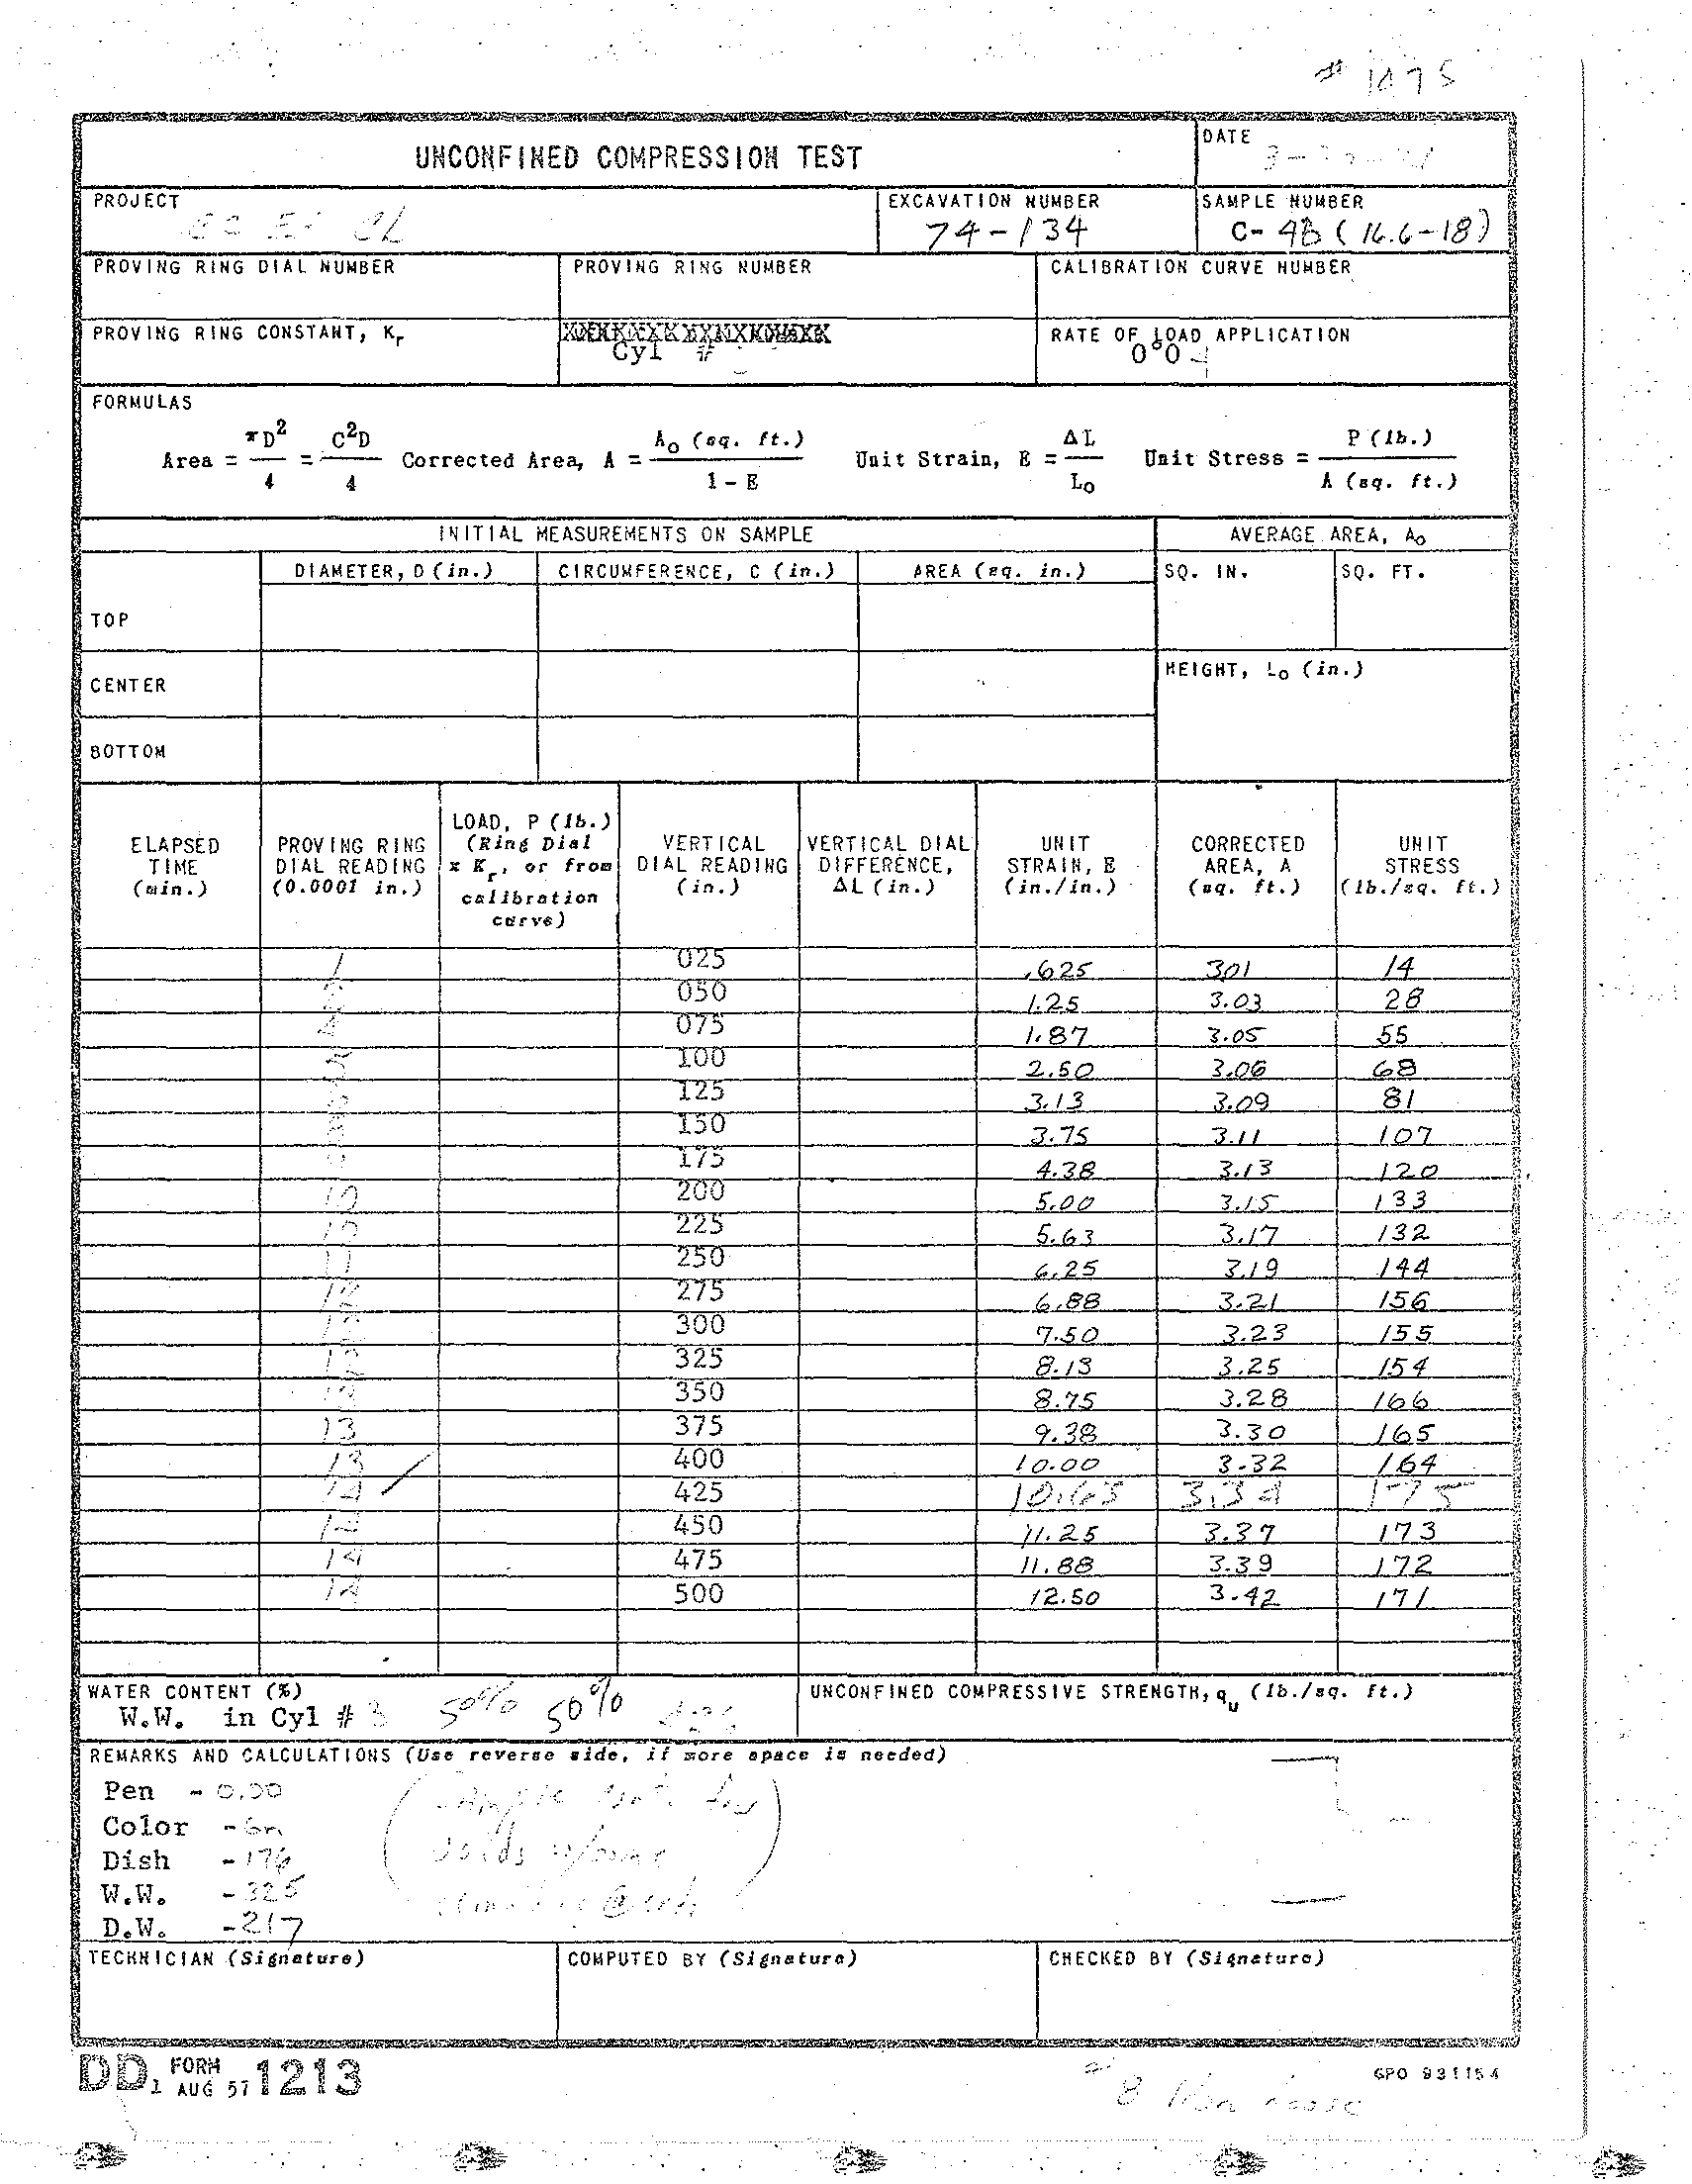 # 1475
UNCONFINED COMPRESSION TEST
DATE
PROJECT
EXCAVATION NUMBER
74-134
SAMPLE NUMBER
C-4B (16.6-18)
PROVING RING DIAL NUMBER
PROVING RING NUMBER
CALIBRATION CURVE NUMBER
PROVING RING CONSTANT, Kr
Cyl #
RATE OF LOAD APPLICATION
FORMULAS
Area = πD²/4 = C²D/4 Corrected Area, A = A₀ (sq. ft.)/1 - E Unit Strain, E = ΔL/L₀ Unit Stress = P (lb.)/A (sq. ft.)
INITIAL MEASUREMENTS ON SAMPLE
AVERAGE AREA, A₀
DIAMETER, D (in.) CIRCUMFERENCE, C (in.) AREA (sq. in.) SQ. IN. SQ. FT.
TOP
CENTER
HEIGHT, L₀ (in.)
BOTTOM
ELAPSED TIME (min.)
PROVING RING DIAL READING (0.0001 in.)
LOAD, P (lb.) (Ring Dial x Kr, or from calibration curve)
VERTICAL DIAL READING (in.)
VERTICAL DIAL DIFFERENCE, ΔL (in.)
UNIT STRAIN, E (in./in.)
CORRECTED AREA, A (sq. ft.)
UNIT STRESS (lb./sq. ft.)
1 025 .625 301 14
050 1.25 3.03 28
075 1.87 3.05 55
100 2.50 3.06 68
125 3.13 3.09 81
150 3.75 3.11 107
175 4.38 3.13 120
10 200 5.00 3.15 133
10 225 5.63 3.17 132
11 250 6.25 3.19 144
12 275 6.88 3.21 156
300 7.50 3.23 155
325 8.13 3.25 154
350 8.75 3.28 166
13 375 9.38 3.30 165
13 400 10.00 3.32 164
14 425 10.63 3.34 175
14 450 11.25 3.37 173
14 475 11.88 3.39 172
14 500 12.50 3.42 171
WATER CONTENT (%)
W.W. in Cyl # 3 50% 50%
UNCONFINED COMPRESSIVE STRENGTH, qu (lb./sq. ft.)
REMARKS AND CALCULATIONS (Use reverse side, if more space is needed)
Pen - 0.00
Color - Gn
Dish - 176
W.W. - 325
D.W. - 217
TECHNICIAN (Signature) COMPUTED BY (Signature) CHECKED BY (Signature)
DD FORM 1 AUG 57 1213
GPO 931154